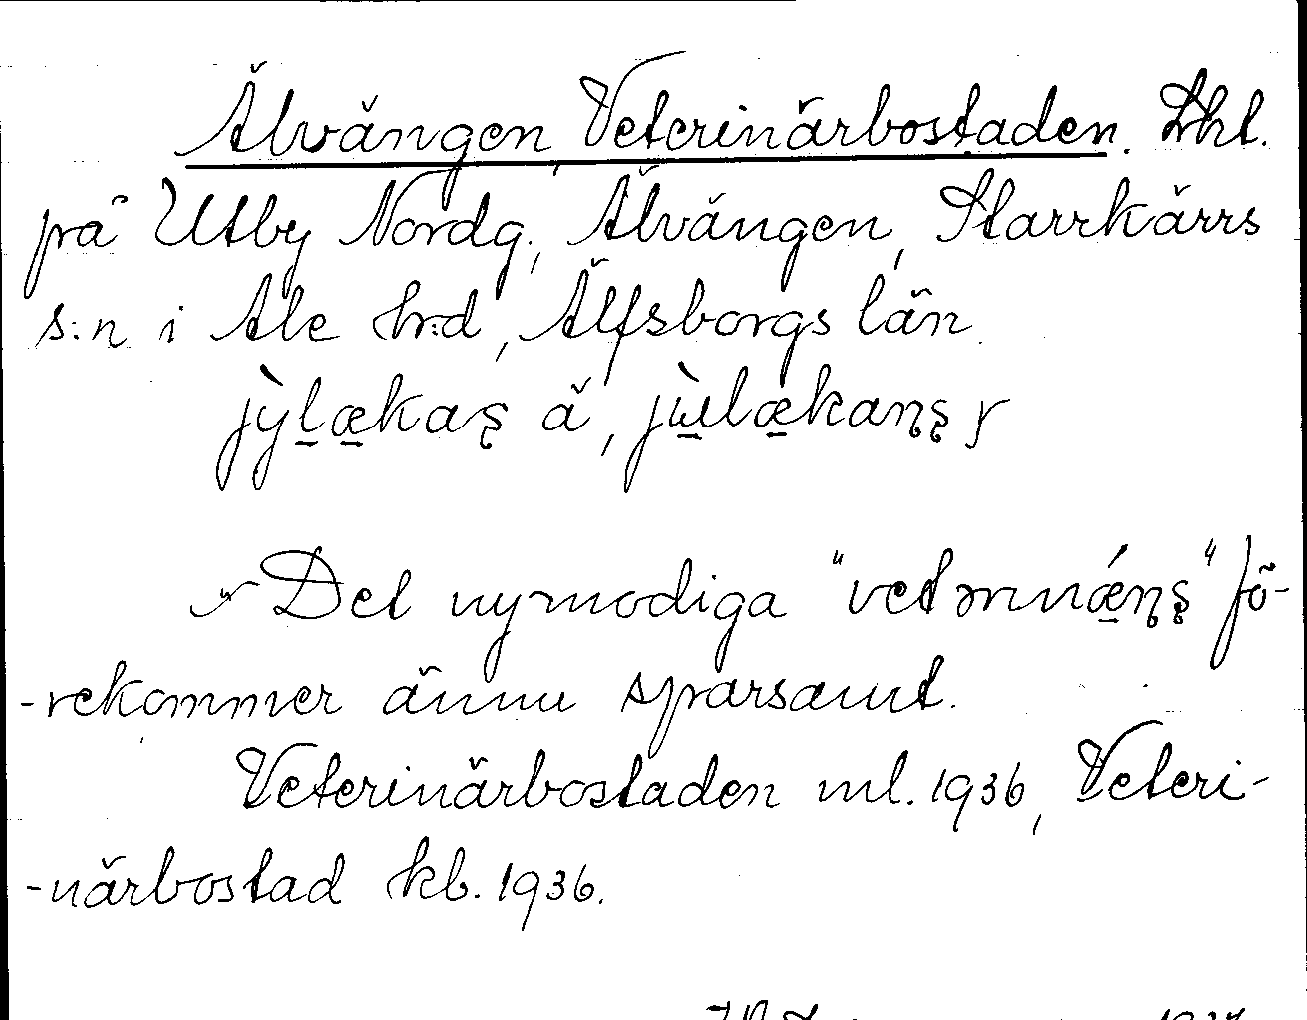 Älvängen, Veterinärbostaden. Lht.
på Utby Nordg., Älvängen, Starrkärrs
s:n i Ale hrd, Älfsborgs län.
jỳlækaş ä, jùlækaņş r
Det nymodiga "vetrnnǽņş" fö-
-rekommer ännu sparsamt.
Veterinärbostaden ml. 1936, Veteri-
-närbostad kb. 1936.